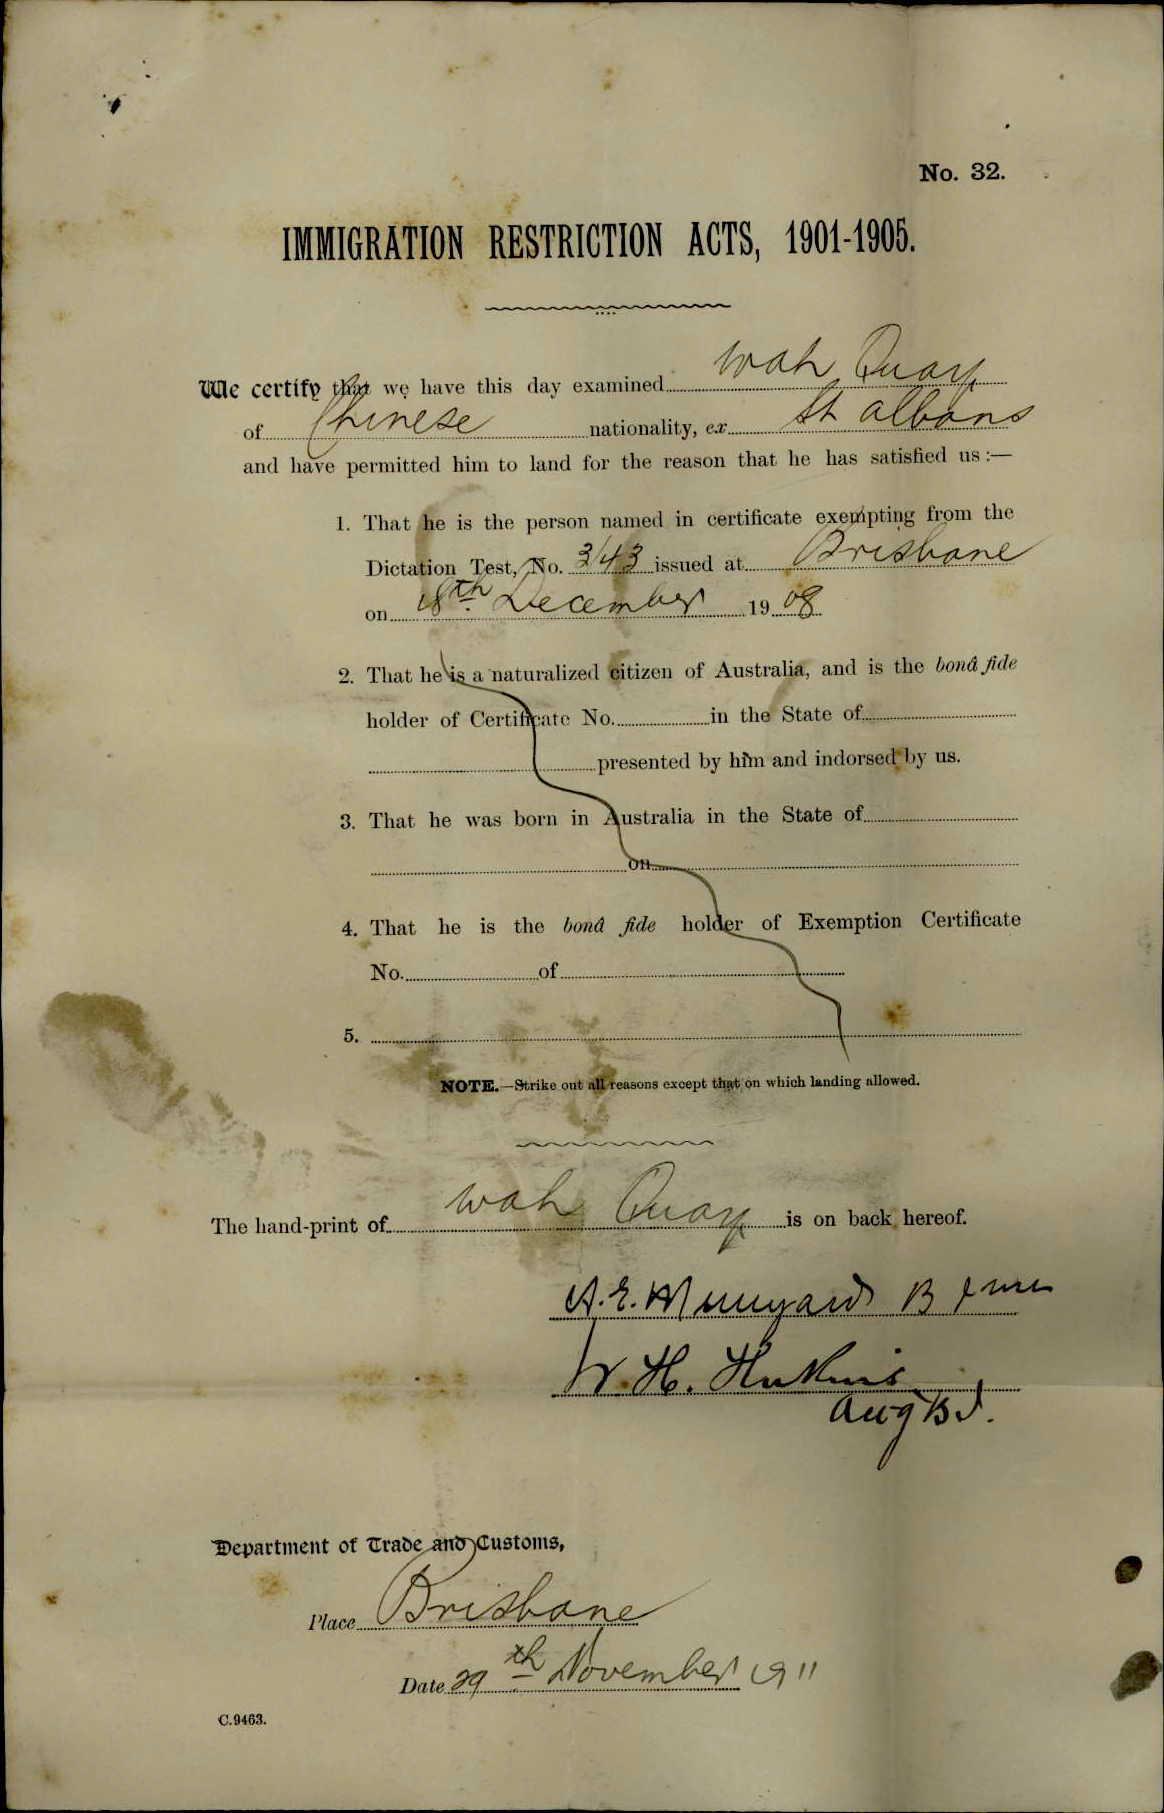 No. 32.
IMMIGRATION RESTRICTION ACTS, 1901-1905.
We certify that we have this day examined Wah Quay
of Chinese nationality, ex St Albans
and have permitted him to land for the reason that he has satisfied us:—
1. That he is the person named in certificate exempting from the
Dictation Test, No. 343 issued at Brisbane
on 18th December 1908
2. That he is a naturalized citizen of Australia, and is the bonâ fide
holder of Certificate No. in the State of
presented by him and indorsed by us.
3. That he was born in Australia in the State of
on
4. That he is the bonâ fide holder of Exemption Certificate
No. of
5.
NOTE.—Strike out all reasons except that on which landing allowed.
The hand-print of Wah Quay is on back hereof.
A. E. Munyard
W. H.
Department of Trade and Customs,
Place Brisbane
Date 29th November 1911
C.9463.